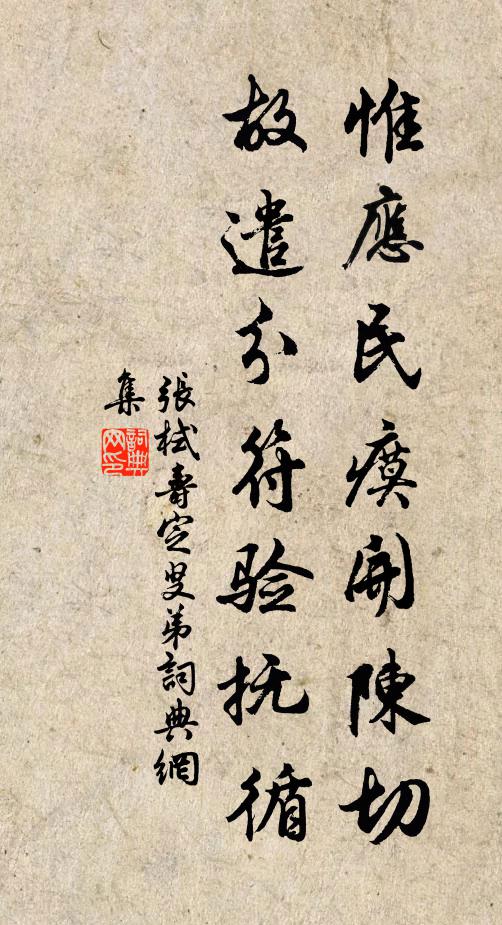 惟應民瘼開陳切
故遣分符验抚循
張栻壽定叟弟詞典網
集
詞典
网印